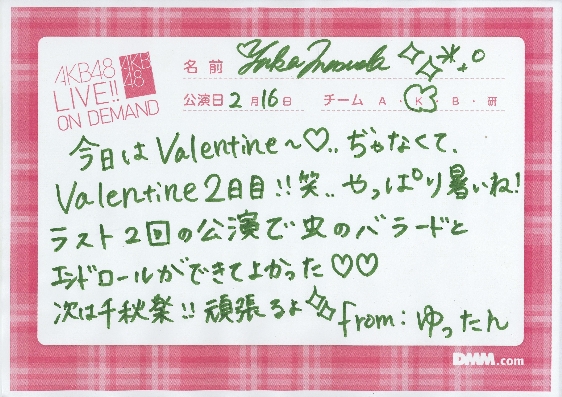 AKB48
LIVE!!
ON DEMAND
AKB
48
名前
公演日 2月16日 チーム A・K・B・研
今日は Valentine~♡..ぢゃなくて、
Valentine2日目!!笑..やっぱり暑いね!
ラスト2回の公演で虫のバラードと
エンドロールができてよかった♡♡
次は千秋楽!!頑張るよ
from:ゆったん
DMM.com